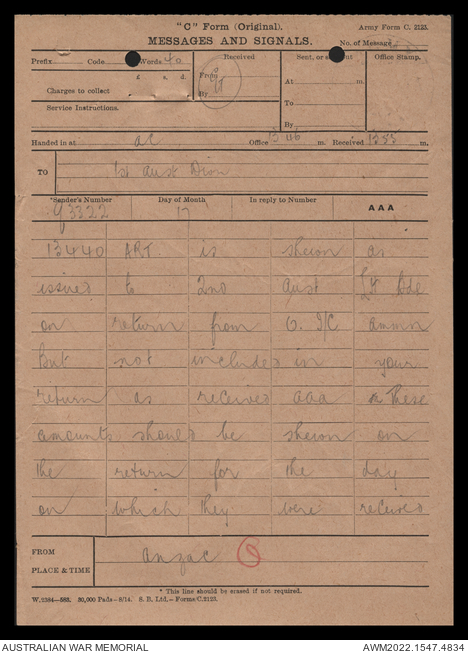 "C" Form (Original). Army Form C. 2123.
MESSAGES AND SIGNALS. No. of Message
Prefix Code Words 40 Received Sent, or sent out Office Stamp.
£ s. d. From
Charges to collect By At m.
To
Service Instructions. By
Handed in at ac Office 1346 m. Received 1353 m.
TO 1st Aust Divn
*Sender's Number Day of Month In reply to Number AAA
93322 17
13440 ART is shewn as
issued to 2nd aust LH Bde
on return from O. I/C ammn
but not included in your
return as received aaa These
amounts should be shewn on
the return for the day
on which they were received
FROM anzac
PLACE & TIME
* This line should be erased if not required.
W.2384—583. 50,000 Pads—8/14. S. B. Ltd.—Forms/C.2123.
AUSTRALIAN WAR MEMORIAL AWM2022.1547.4834